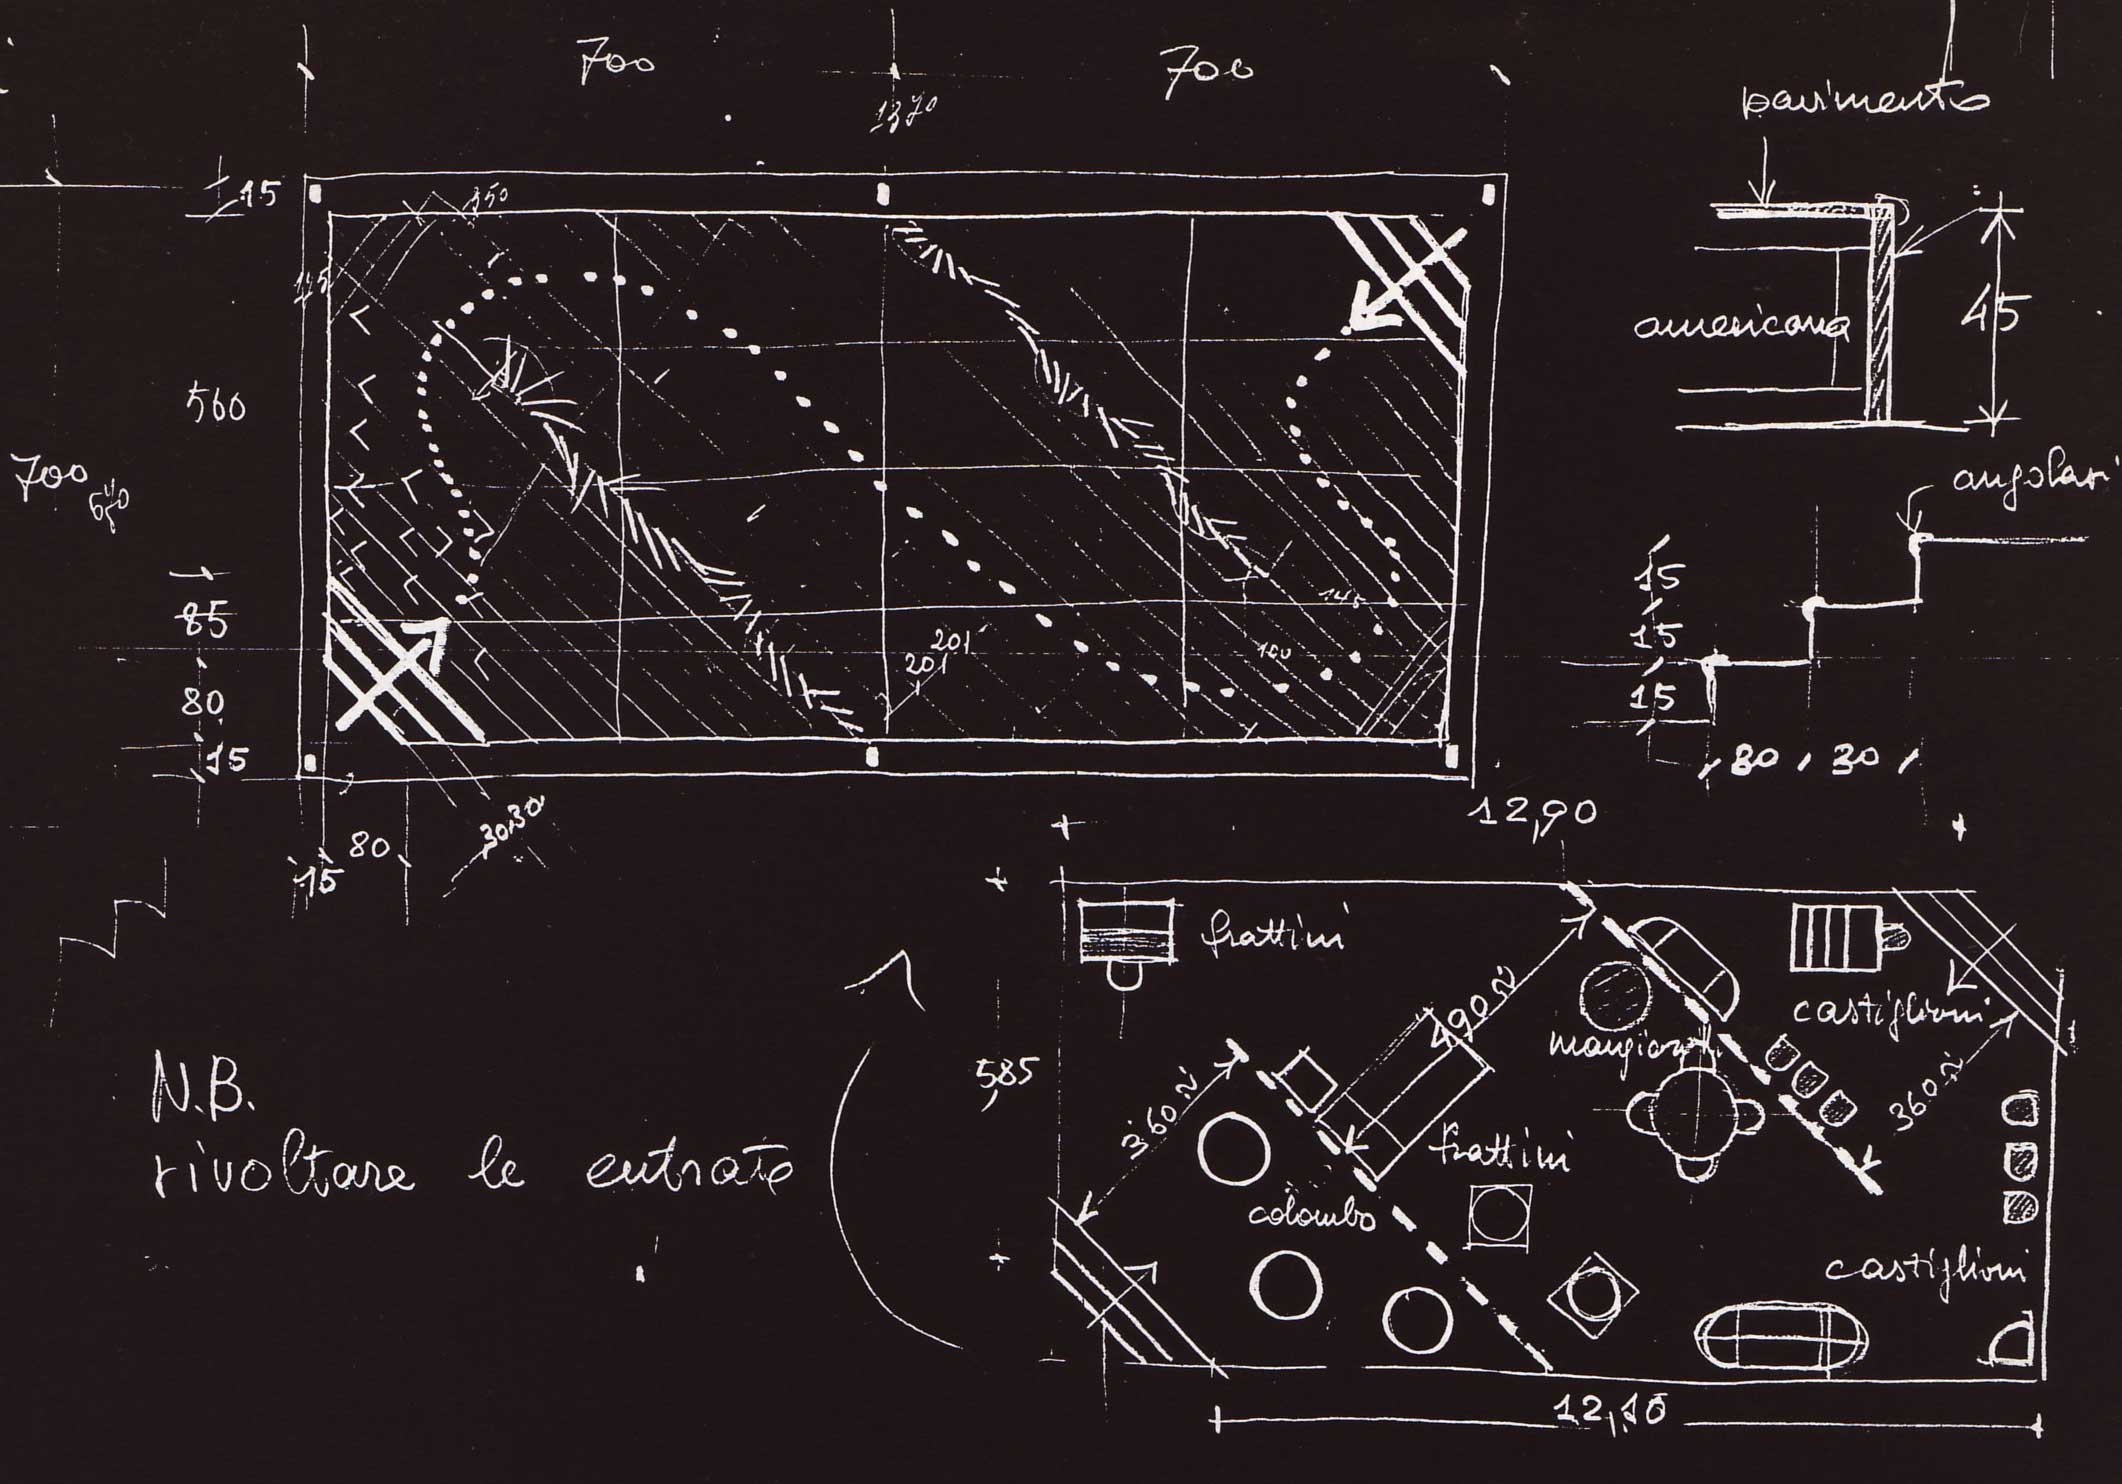 700
700
1370
pavimento
15
350
115
45
americana
560
700
640
angolari
85
15
15
15
145
100
201
201
80
15
30 30
12,90
30 30
80
15
frattini
castiglioni
490
585
360
360
N.B.
rivoltare le entrate
frattini
colombo
castiglioni
12,10